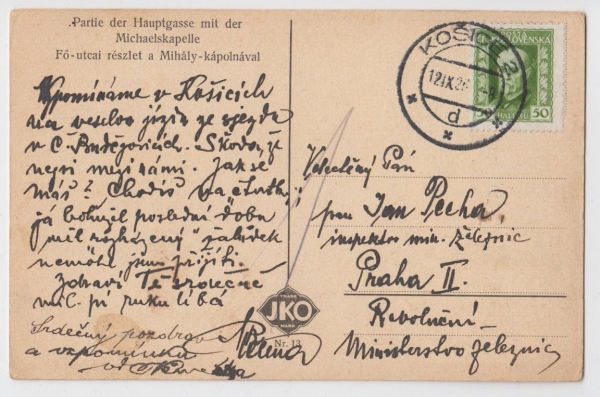 Partie der Hauptgasse mit der
Michaelskapelle
Fő-utcai részlet a Mihály-kápolnával
Vzpomínáme v Košicích
na veselou jízdu ze sjezdu
v Č. Budějovicích. Škoda, že
nejsi mezi námi. Jak se
máš? Chodíš na čtvrtky?
já bohužel poslední dobu
měl rozházený žaludek
nemohl jsem přijíti.
Zdraví Tě srdečně
mil. pí ruku líbá
Srdečný pozdrav
a vzpomínku
od
KOŠICE 2
12.IX.26
d
ČESKOSLOVENSKÁ
50
HALÉŘŮ
Velectěný Pán
pan Jan Pecha
inspektor min. železnic
Praha II.
Revoluční
Ministerstvo železnic
TRADE
JKO
MARK
Nr. 13